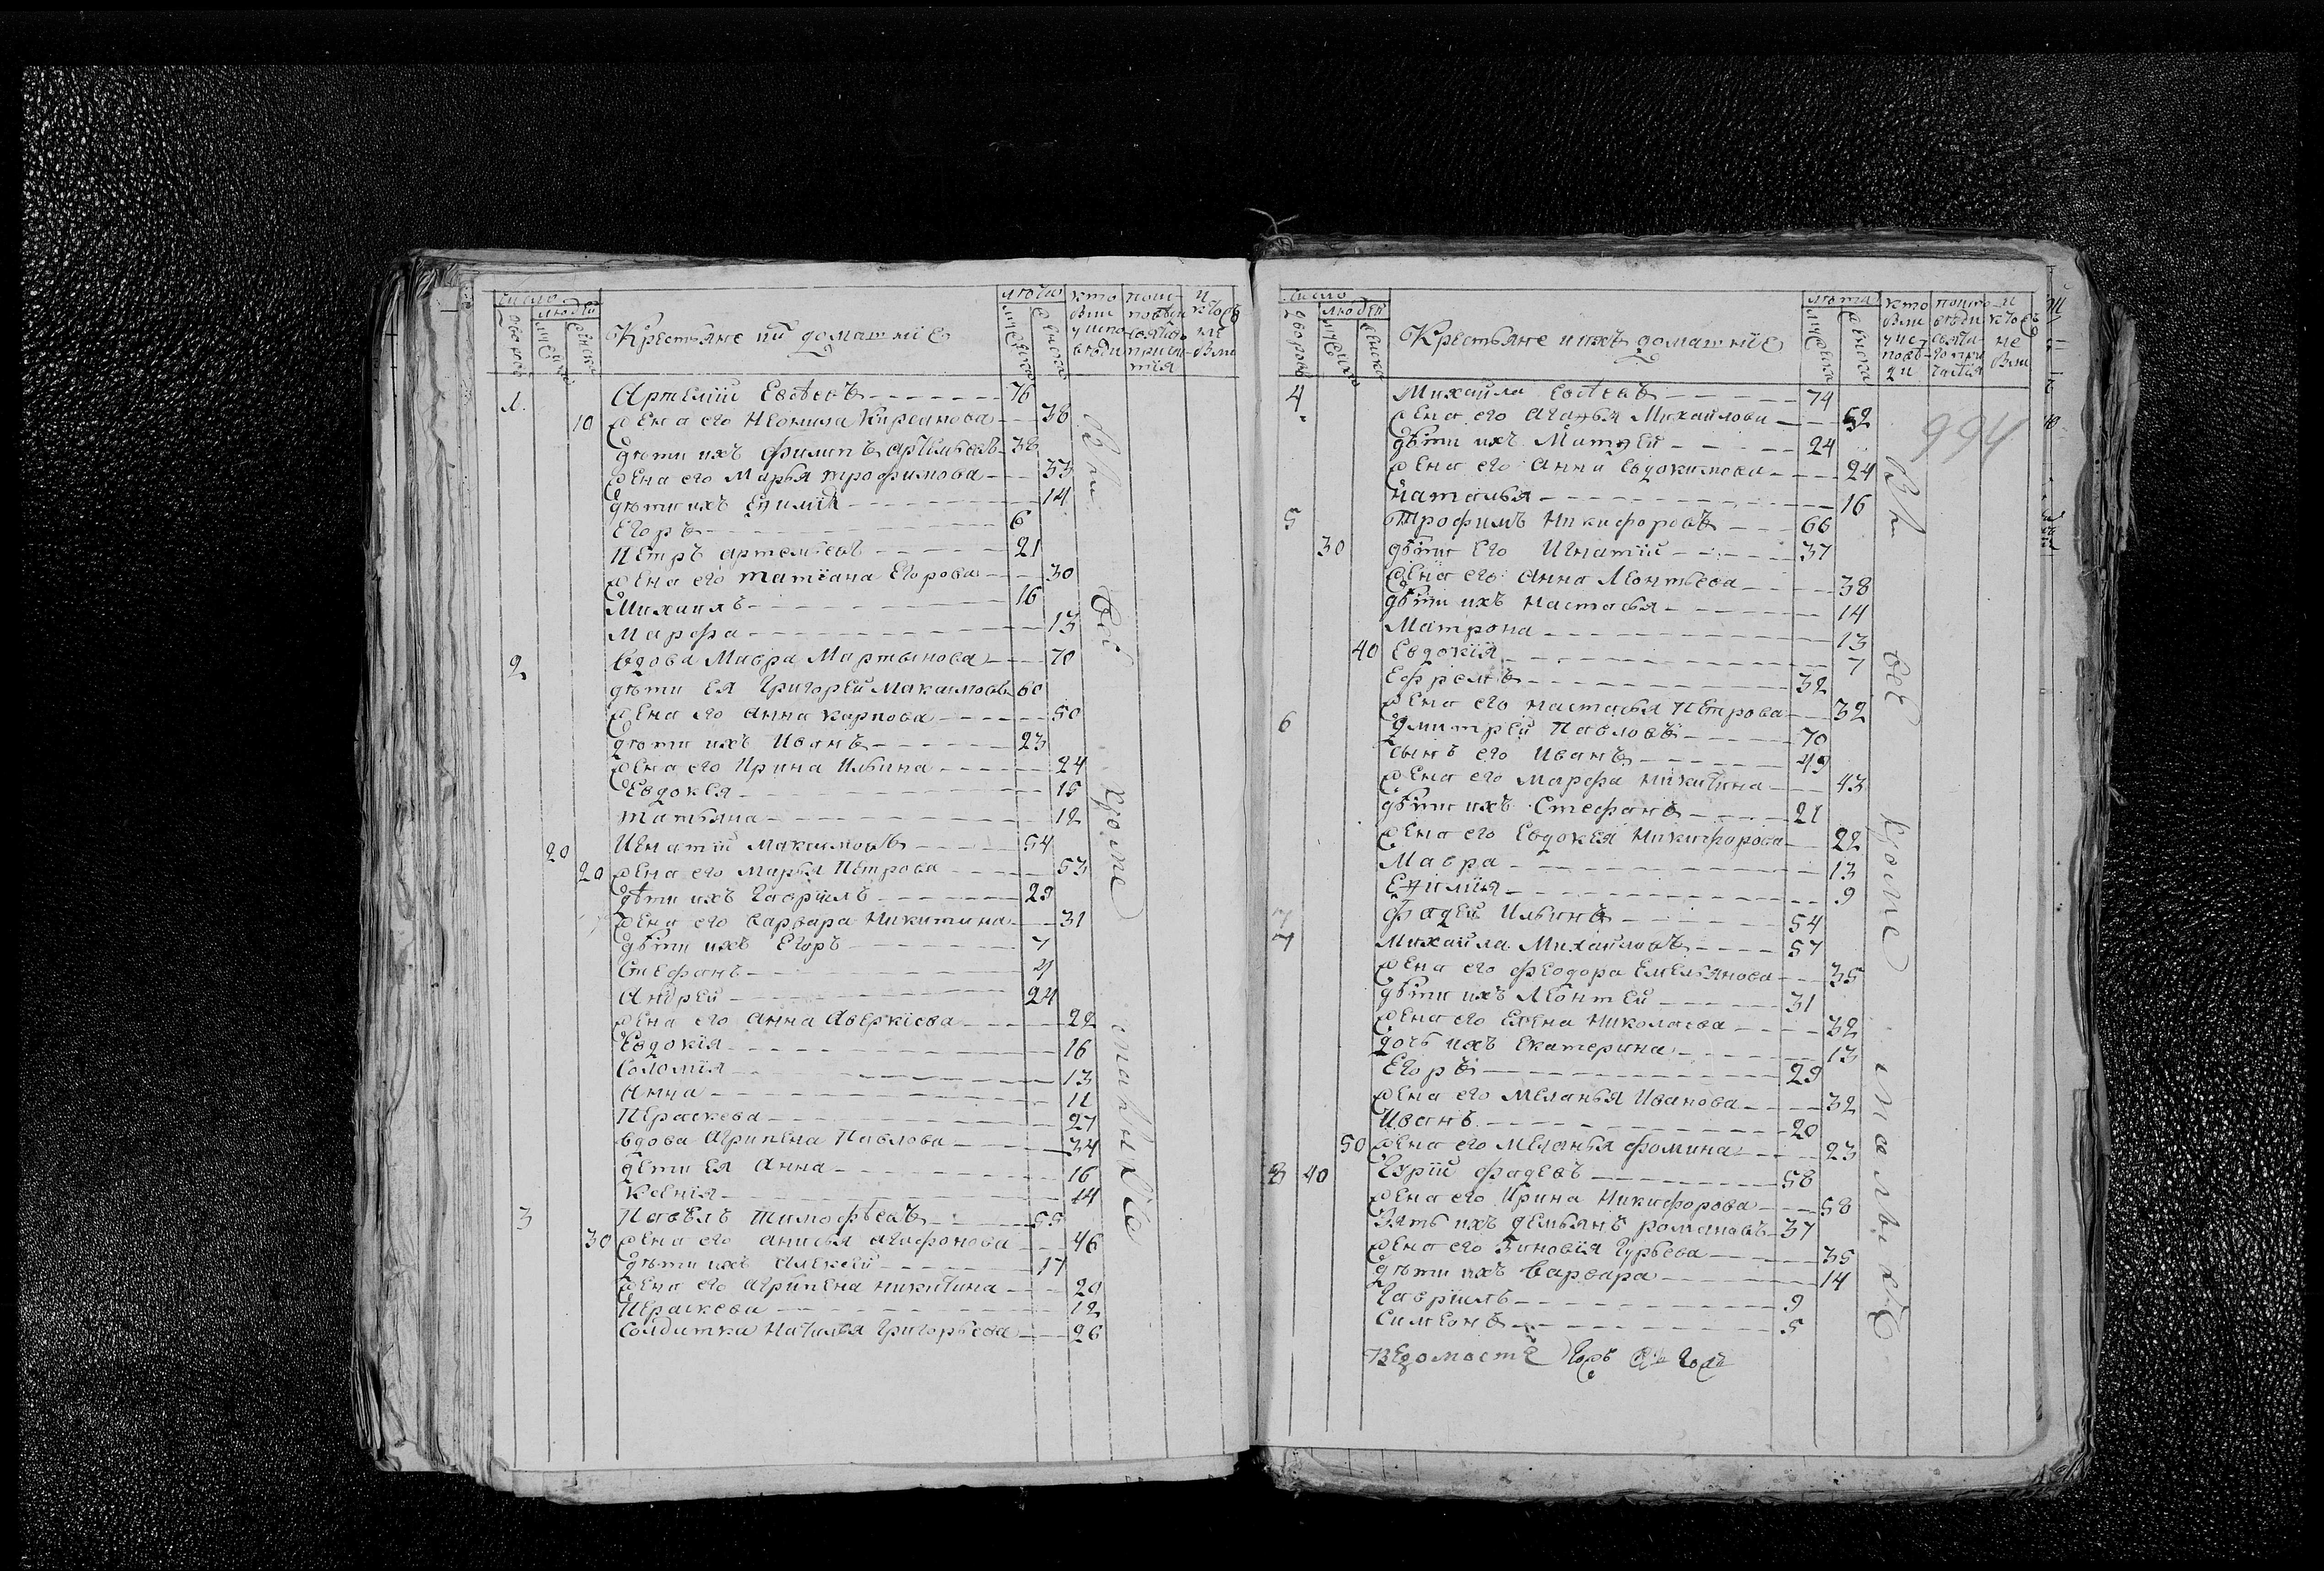 число
людей
лѣта
Крестьяне и их домашнїе
1 Артемїй Евсѣевъ 76
10 жена его Неонила Кирсанова 36
дѣти ихъ Филипъ Артемьевъ 38
жена его Марья трофимова 33
дѣти ихъ Еѳимїя 14
Егоръ 6
Петръ артемьевъ 21
жена его татїана Егорова 30
Михаилъ 16
Марфа 13
2 вдова Мавра Мартынова 70
дѣти ея Григорей Максимовъ 60
жена его анна карпова 50
дѣти ихъ Иванъ 23
жена его Ирина Ильина 24
Евдокея 15
татьяна 12
20 Игнатїй Максимовъ 54
20 жена его Марья Петрова 53
дѣти ихъ Гаврїилъ 29
жена его варвара Никитина 31
дѣти ихъ Егоръ 7
Стефанъ 4
Андрей 24
жена его анна Аверкїева 22
Евдокїя 16
Соломїя 13
Анна 11
Параскева 27
вдова Агрипена Павлова 34
дети ея анна 16
Ксенїя 14
3 Павелъ тимофѣевъ 55
30 жена его анисья агафонова 46
дѣти ихъ Алексей 17
жена его агрипена никитина 20
Параскева 12
Солдатка Наталья Григорьева 26
Вси всѣ кроме малыхъ
число
людей
лѣта
Крестьяне и ихъ домашнїе
994
4 Михайла Евсѣевъ 74
жена его агафья Михайлова 52
дѣти ихъ Матѳей 24
жена его анна евдокимова 24
Наталья 16
5 Трофимъ Никифоровъ 66
30 дѣти его Игнатїй 37
жена его анна Леонтьева 38
дѣти ихъ настасья 14
Матрона 13
40 Евдокїя 7
Ефремъ 32
жена его настасья Петрова 32
6 Дмитрей Павловъ 70
сынъ его Иванъ 49
жена его марфа никитина 43
дѣти ихъ Стефанъ 21
жена его Евдокея Никифорова 22
Мавра 13
Еѳимїя 9
7 фадей Ильинъ 54
7 Михайла Михайловъ 57
жена его феодора Емельянова 35
дѣти ихъ Леонтей 31
жена его Елена Николаева 32
дочь ихъ Екатерина 13
Егоръ 29
жена его Меланья Иванова 32
Иванъ 20
50 жена его Меланья фомина 23
8 40 Гурїй фадеевъ 58
жена его Ирина Никифорова 58
Зять ихъ демьянъ романовъ 37
жена его Зиновїя Гурьева 35
дѣти ихъ варвара 14
Гаврїилъ 9
Симеонъ 5
Вси всѣ кроме малыхъ